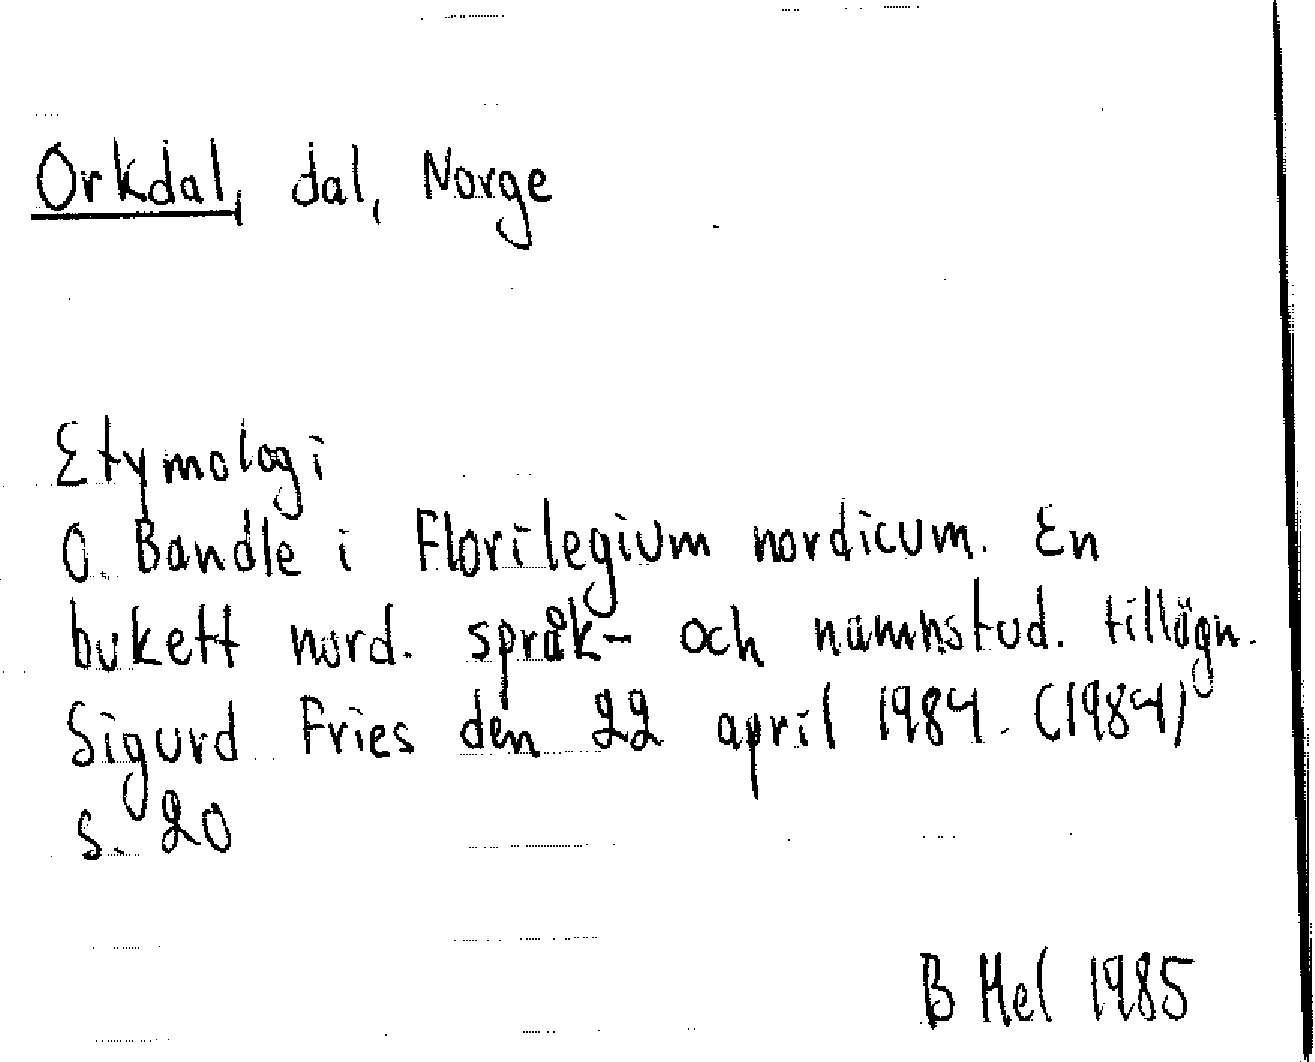 Orkdal, dal, Norge
Etymologi
O. Bandle i Florilegium nordicum. En
bukett nord. språk- och namnstud. tillägn.
Sigurd Fries den 22 april 1984. (1984)
s. 20
B Hel 1985